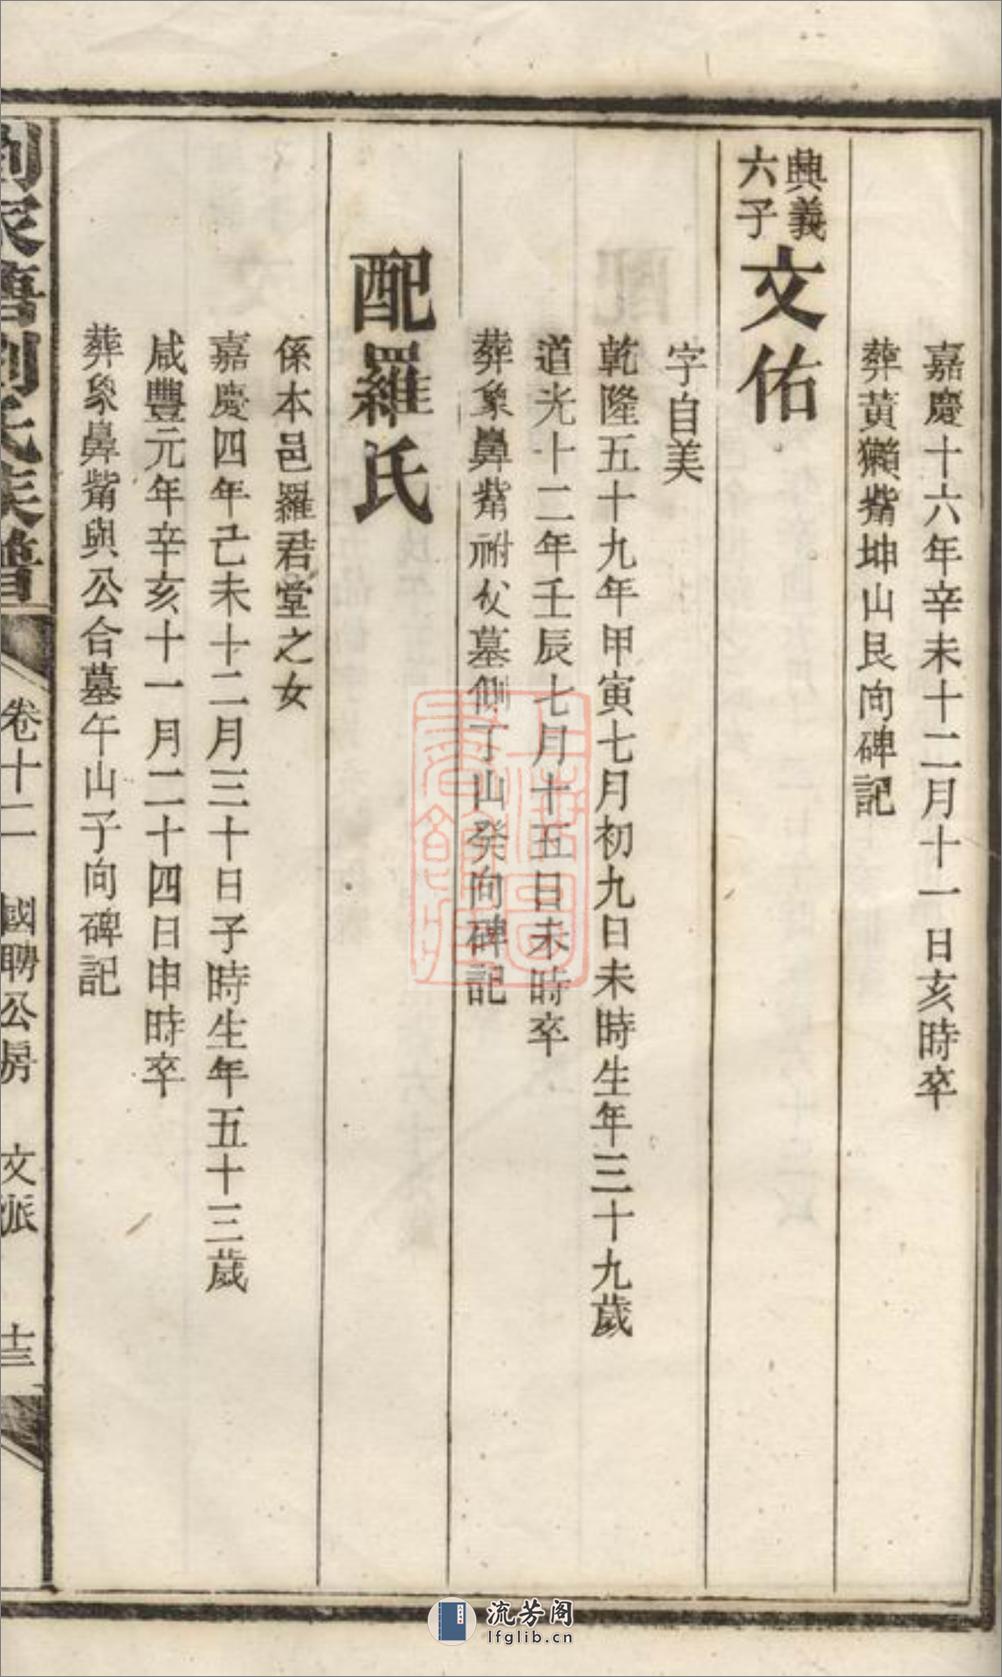 嘉慶十六年辛未十二月十一日亥時卒
葬黃獺觜坤山艮向碑記
興義
六子
文佑
字自美
乾隆五十九年甲寅七月初九日未時生年三十九歲
道光十二年壬辰七月十五日未時卒
葬象鼻觜祔父墓側丁山癸向碑記
配羅氏
係本邑羅君堂之女
嘉慶四年己未十二月三十日子時生年五十三歲
咸豐元年辛亥十一月二十四日申時卒
葬象鼻觜與公合墓午山子向碑記
劉氏族譜
卷十二
國聘公房
文派
十三
流芳阁
lfglib.cn